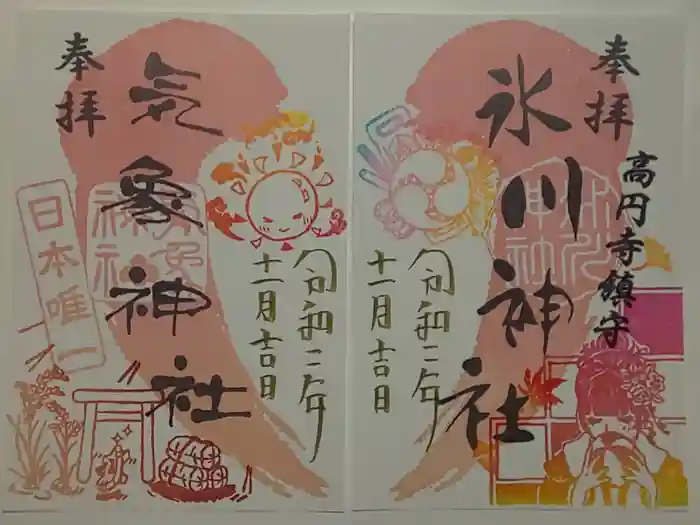 奉拝
高円寺鎮守
氷川神社
令和二年
十一月吉日
奉拝
気象神社
日本唯一
令和二年
十一月吉日